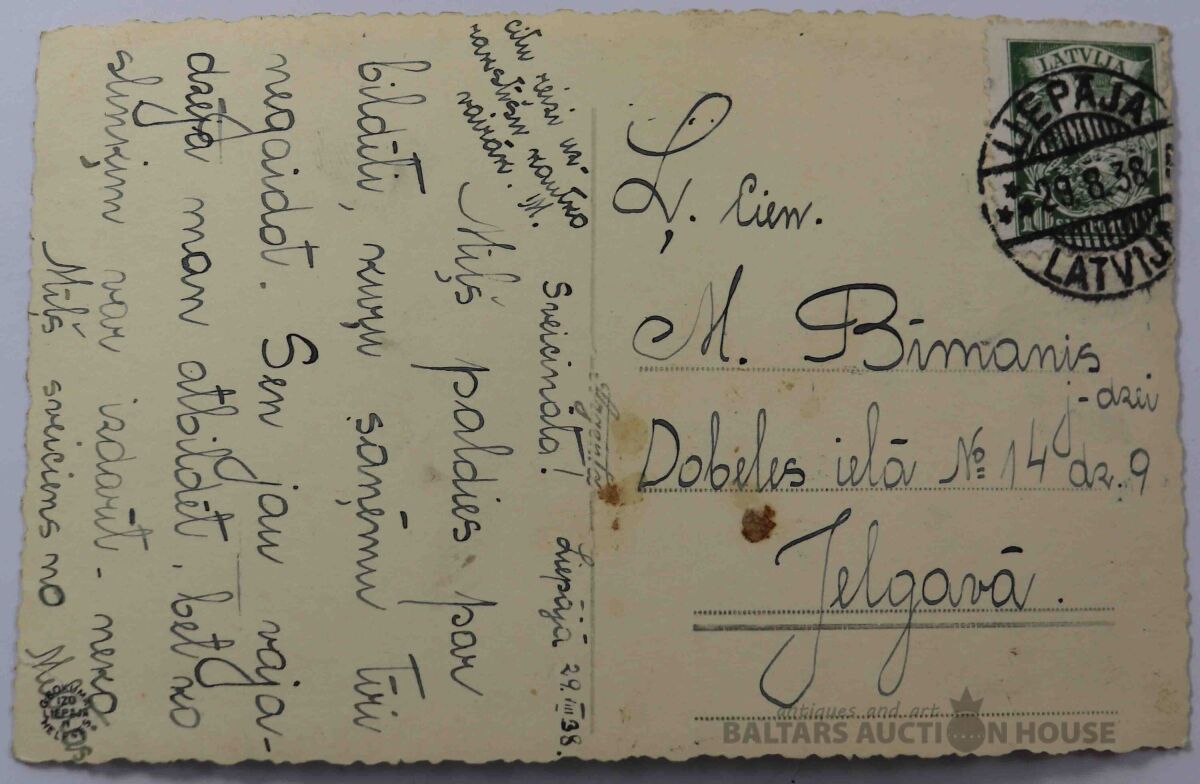 Sveicināta! Liepājā 29.VIII 38.
Mīļš paldies par
bildīti, kuŗu saņēmu tīri
negaidot. Sen jau vaja-
dzēja man atbildēt, bet ko
sliņķim var izdarīt - neko
Mīļš sveiciens no
citu reizi uz-
rakstīšu kautko
vairāk. M.
LATVIJA
LIEPĀJA
29.8.38
LATVIJA
Ļ. Cien.
M. Bīmanis
j-dzei
Dobeles ielā № 14 dz. 9
Jelgavā.
antiques and art
BALTARS AUCTION HOUSE